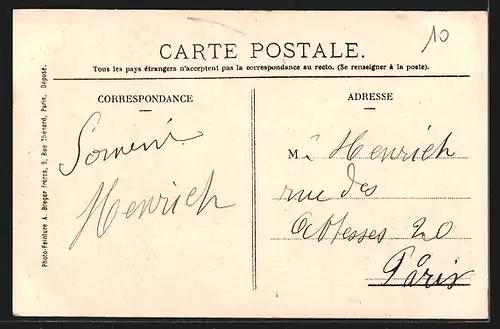 10
CARTE POSTALE.
Tous les pays étrangers n'acceptent pas la correspondance au recto. (Se renseigner à la poste).
CORRESPONDANCE
Henrich
ADRESSE
M. Henrich
rue des
Abbesses 20
Paris
Photo-Peinture A. Breger Frères, 9, Rue Thénard, Paris. Déposé.